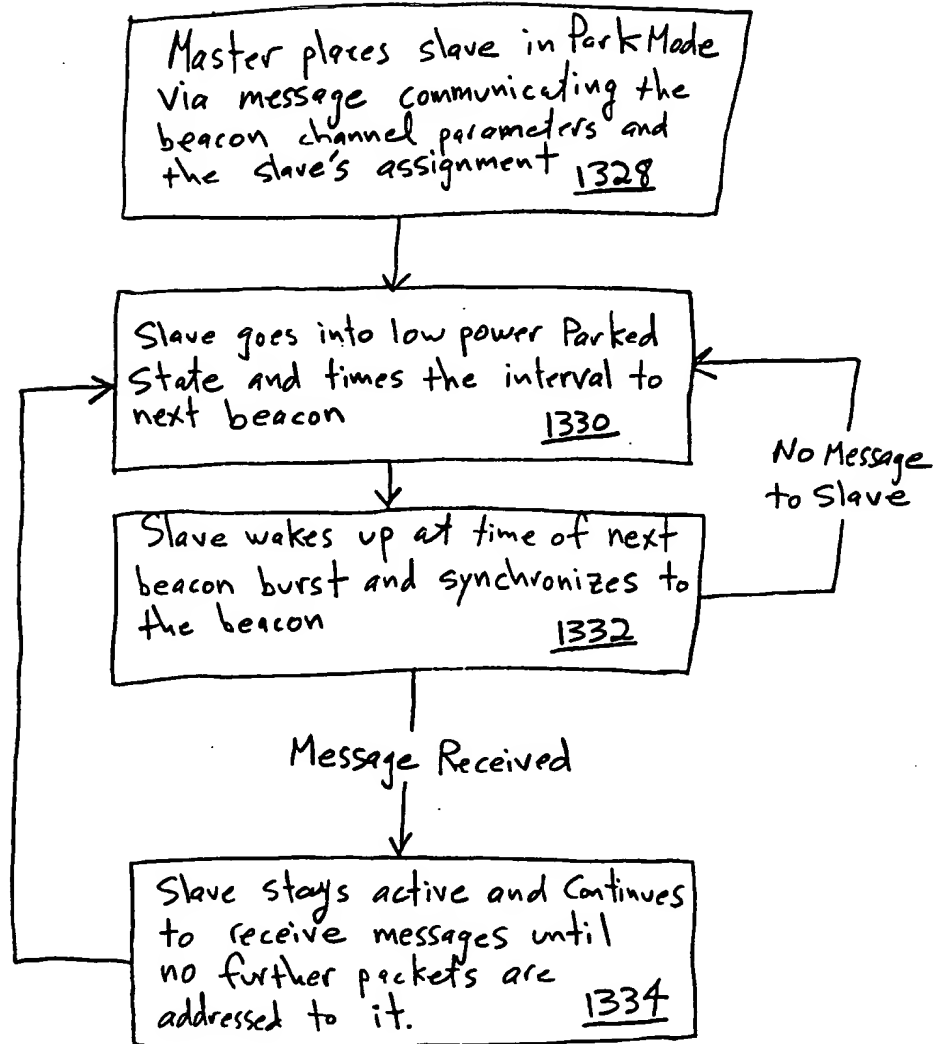 Master places slave in Park Mode
via message communicating the
beacon channel parameters and
the slave's assignment 1328
Slave goes into low power Parked
State and times the interval to
next beacon 1330
No Message
to Slave
Slave wakes up at time of next
beacon burst and synchronizes to
the beacon 1332
Message Received
Slave stays active and Continues
to receive messages until
no further packets are
addressed to it. 1334